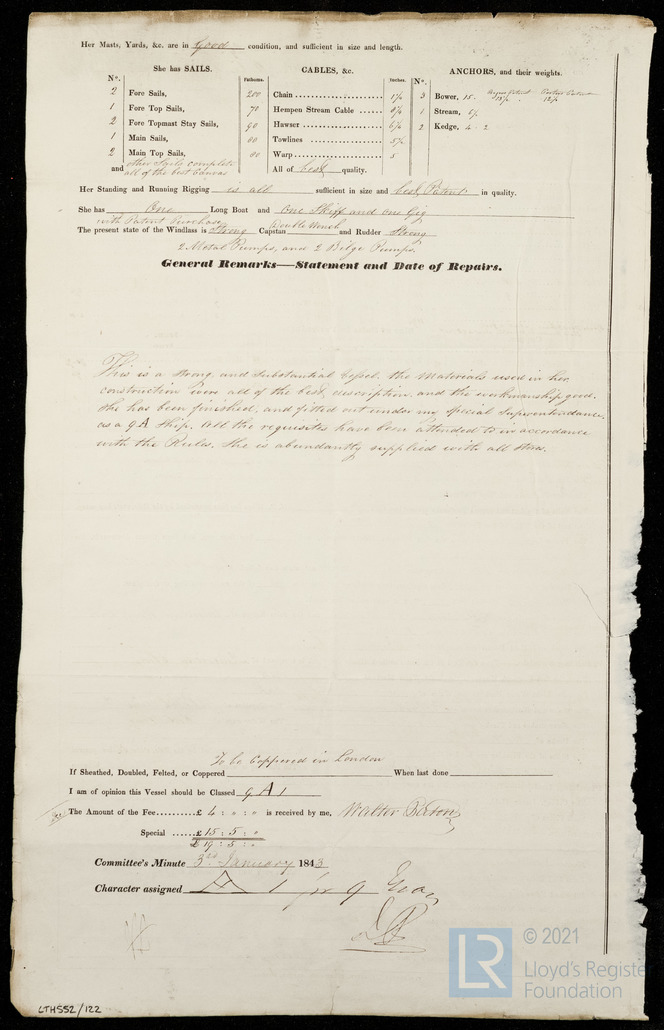 Her Masts, Yards, &c. are in Good condition, and sufficient in size and length.
She has SAILS.
N°.
2 Fore Sails,
1 Fore Top Sails,
2 Fore Topmast Stay Sails,
1 Main Sails,
2 Main Top Sails,
and other Sails complete
all of the best Canvas
CABLES, &c.
Fathoms. Inches.
200 Chain 1 1/2
70 Hempen Stream Cable
90 Hawser
80 Towlines
80 Warp 5
All of best quality.
ANCHORS, and their weights.
N°.
3 Bower, 15.
1 Stream,
2 Kedge, 4 . 2
Her Standing and Running Rigging is all sufficient in size and best Patent in quality.
She has One Long Boat and One Skiff and one Gig
with Patent Purchase Double Winch
The present state of the Windlass is Strong Capstan and Rudder Strong
2 Metal Pumps, and 2 Bilge Pumps.
General Remarks—Statement and Date of Repairs.
This is a strong and substantial Vessel, the Materials used in her
construction were all of the best description, and the workmanship good.
She has been finished, and fitted out under my special Superintendance,
as a 9 A Ship. All the requisites have been attended to in accordance
with the Rules. She is abundantly supplied with all stores.
To be Coppered in London
If Sheathed, Doubled, Felted, or Coppered When last done
I am of opinion this Vessel should be Classed 9 A 1
The Amount of the Fee £ 4 : 0 : 0 is received by me, Walter Paton
Special £ 15 : 5 : 0
£ 19 : 5 : 0
Committee's Minute 3rd January 1843
Character assigned A 1 for 9 Years
LTHS52/122
LR
© 2021
Lloyd's Register
Foundation